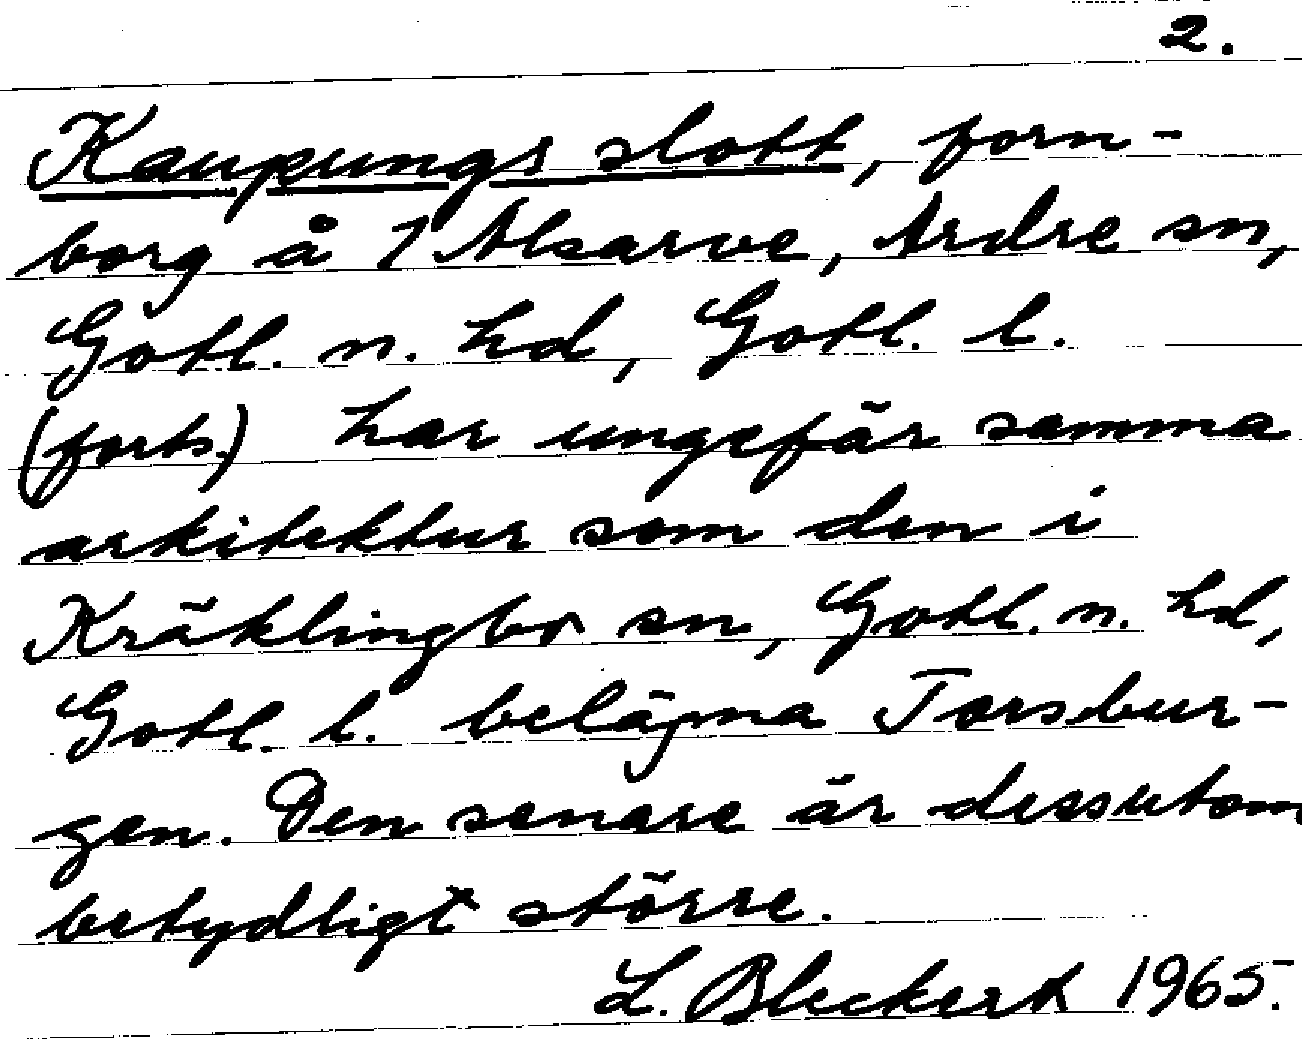 2.
Kaupungs slott, forn-
borg å 1 Alsarve, Ardre sn,
Gotl. n. hd, Gotl. l.
(forts.) har ungefär samma
arkitektur som den i
Kräklingbo sn, Gotl. n. hd,
Gotl. l. belägna Torsbur-
gen. Den senare är dessutom
betydligt större.
L. Bleckert 1965.